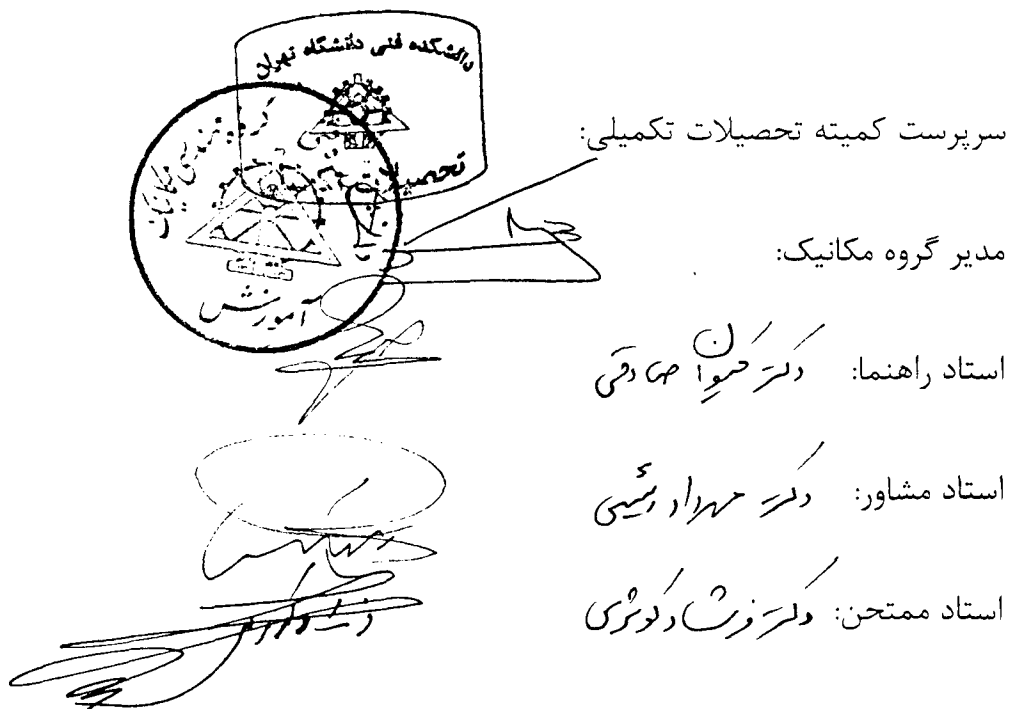 دانشکده فنی دانشگاه تهران
گروه مهندسی مکانیک
آموزش
سرپرست کمیته تحصیلات تکمیلی:
مدیر گروه مکانیک:
استاد راهنما: دکتر کیوان صادقی
استاد مشاور: دکتر مهرداد رئیسی
استاد ممتحن: دکتر فرشاد کوثری